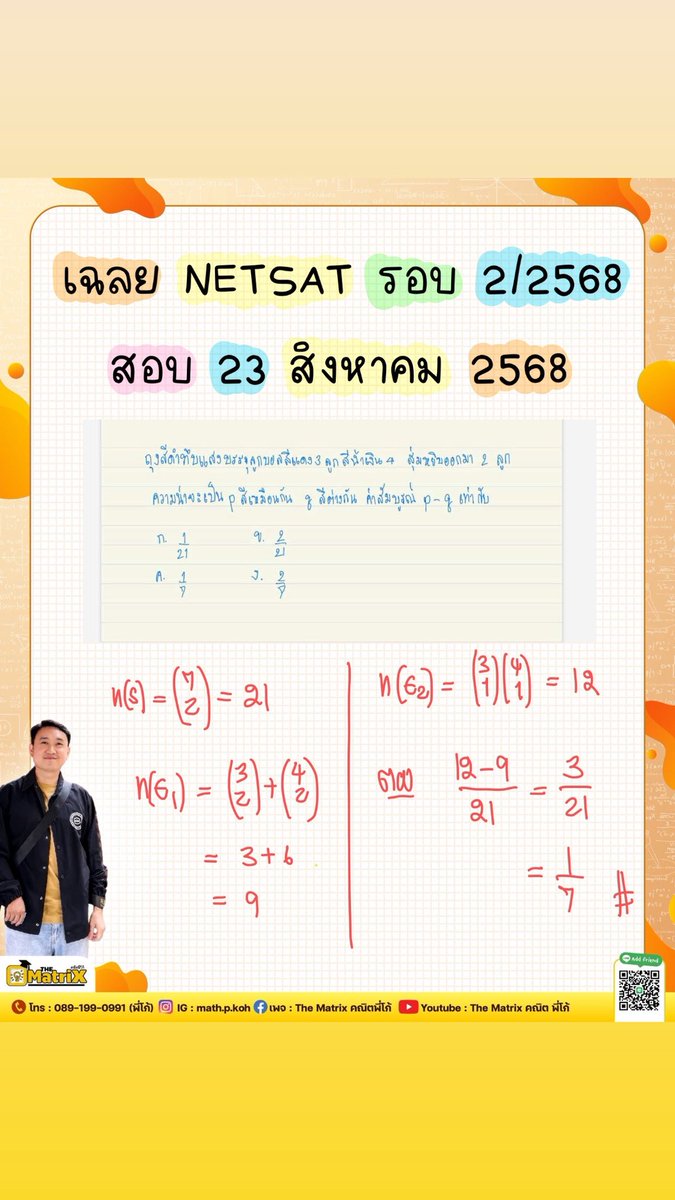 เฉลย NETSAT รอบ 2/2568
สอบ 23 สิงหาคม 2568
ถุงสีดำทึบแสงบรรจุลูกบอลสีแดง 3 ลูก สีน้ำเงิน 4 สุ่มหยิบออกมา 2 ลูก
ความน่าจะเป็น p สีเหมือนกัน q สีต่างกัน ค่าสัมบูรณ์ p-q เท่ากับ
ก. 1/21 ข. 2/21
ค. 1/7 ง. 2/7
n(S) = (7 2) = 21
n(E₁) = (3 2) + (4 2)
= 3 + 6
= 9
n(E₂) = (3 1)(4 1) = 12
ตอบ 12-9/21 = 3/21
= 1/7 #
THE MatriX
Add friend
โทร : 089-199-0991 (พี่โก้) IG : math.p.koh เพจ : The Matrix คณิตพี่โก้ Youtube : The Matrix คณิต พี่โก้